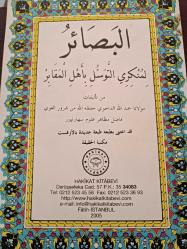 البصائر
لمنكري التوسل بأهل المقابر
من تأليفات
مولانا حمد الله الداجوي حفظه الله من شرور الغوي
فاضل مظاهر علوم سهارنپور
قد اعتنى بطبعه طبعة جديدة بالأوفست
مكتبة الحقيقة
HAKİKAT KİTÂBEVİ
Darüşşefeka Cad. 57 P.K.: 35 34083
Tel: 0212 523 45 56 Fax: 0212 523 36 93
http://www.hakikatkitabevi.com
e-mail: info@hakikatkitabevi.com
Fâtih-İSTANBUL
2005